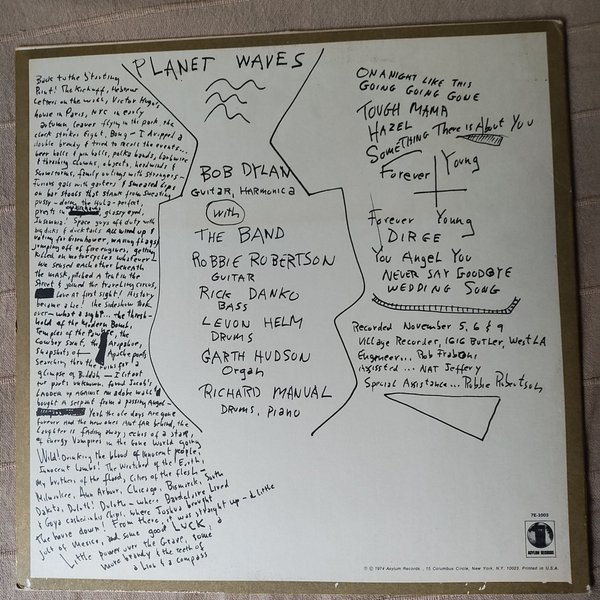 PLANET WAVES
Back to the Starting
Point! The Kickoff, Hebrew
Letters on the walls, Victor Hugo's
house in Paris, NYC in early
autumn, leaves flying in the park, the
clock strikes Eight, Bong - I dropped a
double brandy & tried to recall the events...
beer halls & pin balls, polka bands, barbwire
& thrashing clowns, objects, headwinds &
Snowstorms, family outings with strangers -
Furious gals with garters & smeared lips
on bar stools that stank from sweating
pussy - doing the Hula - perfect,
priests in glassy eyed,
Insomnia! Space guys off duty with
big dicks & ducktails all wired up &
voting for Eisenhower, waving flags &
jumping off of fire engines, getting
Killed on motorcycles whatever -
We sensed each other beneath
the MASK, pitched a tent in the
Street & joined the traveling circus,
Love at first sight! History
became a Lie! the sideshow took
over - what a sight... the thresh-
hold of the Modern Bomb,
Temples of the Pawnee, the
Cowboy Saint, the Arapahoe,
Snapshots of Apache poets
Searching thru the ruins for a
glimpse of Buddah - I lit out
for parts unknown, found Jacob's
Ladder up against an adobe wall &
bought a serpent from a passing angel -
Yeah the ole days are gone
forever and the new ones Aint far behind, the
Laughter is fading away, echos of a star,
of Energy Vampires in the Gone World going
Wild! Drinking the blood of innocent people,
Innocent Lambs! The Wretched of the Earth,
My brothers of the flood, Cities of the flesh -
Milwaukee, Ann Arbor, Chicago, Bismarck, South
Dakota, Duluth! Duluth - where Baudelaire Lived
& Goya cashed in his Chips, where Joshua brought
the house down! From there, it was straight up - a Little
jolt of Mexico, and some good LUCK, a
Little power over the Grave, some
more brandy & the teeth of
a Lion & a compass
BOB DYLAN
GUITAR, HARMONICA
with
THE BAND
ROBBIE ROBERTSON
GUITAR
RICK DANKO
BASS
LEVON HELM
DRUMS
GARTH HUDSON
Organ
RICHARD MANUAL
DRUMS, PIANO
ON A NIGHT LIKE THIS
GOING GOING GONE
TOUGH MAMA
HAZEL
SOMETHING There is About You
Forever Young
Forever Young
DIRGE
You Angel You
NEVER SAY GOODBYE
WEDDING SONG
Recorded November 5, 6 & 9
Village Recorder, 1616 BUTLER, West LA
Engineer... Rob Fraboni
Assisted... NAT Jeffery
Special Assistance... Robbie Robertson
7E-1003
ASYLUM RECORDS
℗ © 1974 Asylum Records, 15 Columbus Circle, New York, N.Y. 10023. Printed in U.S.A.